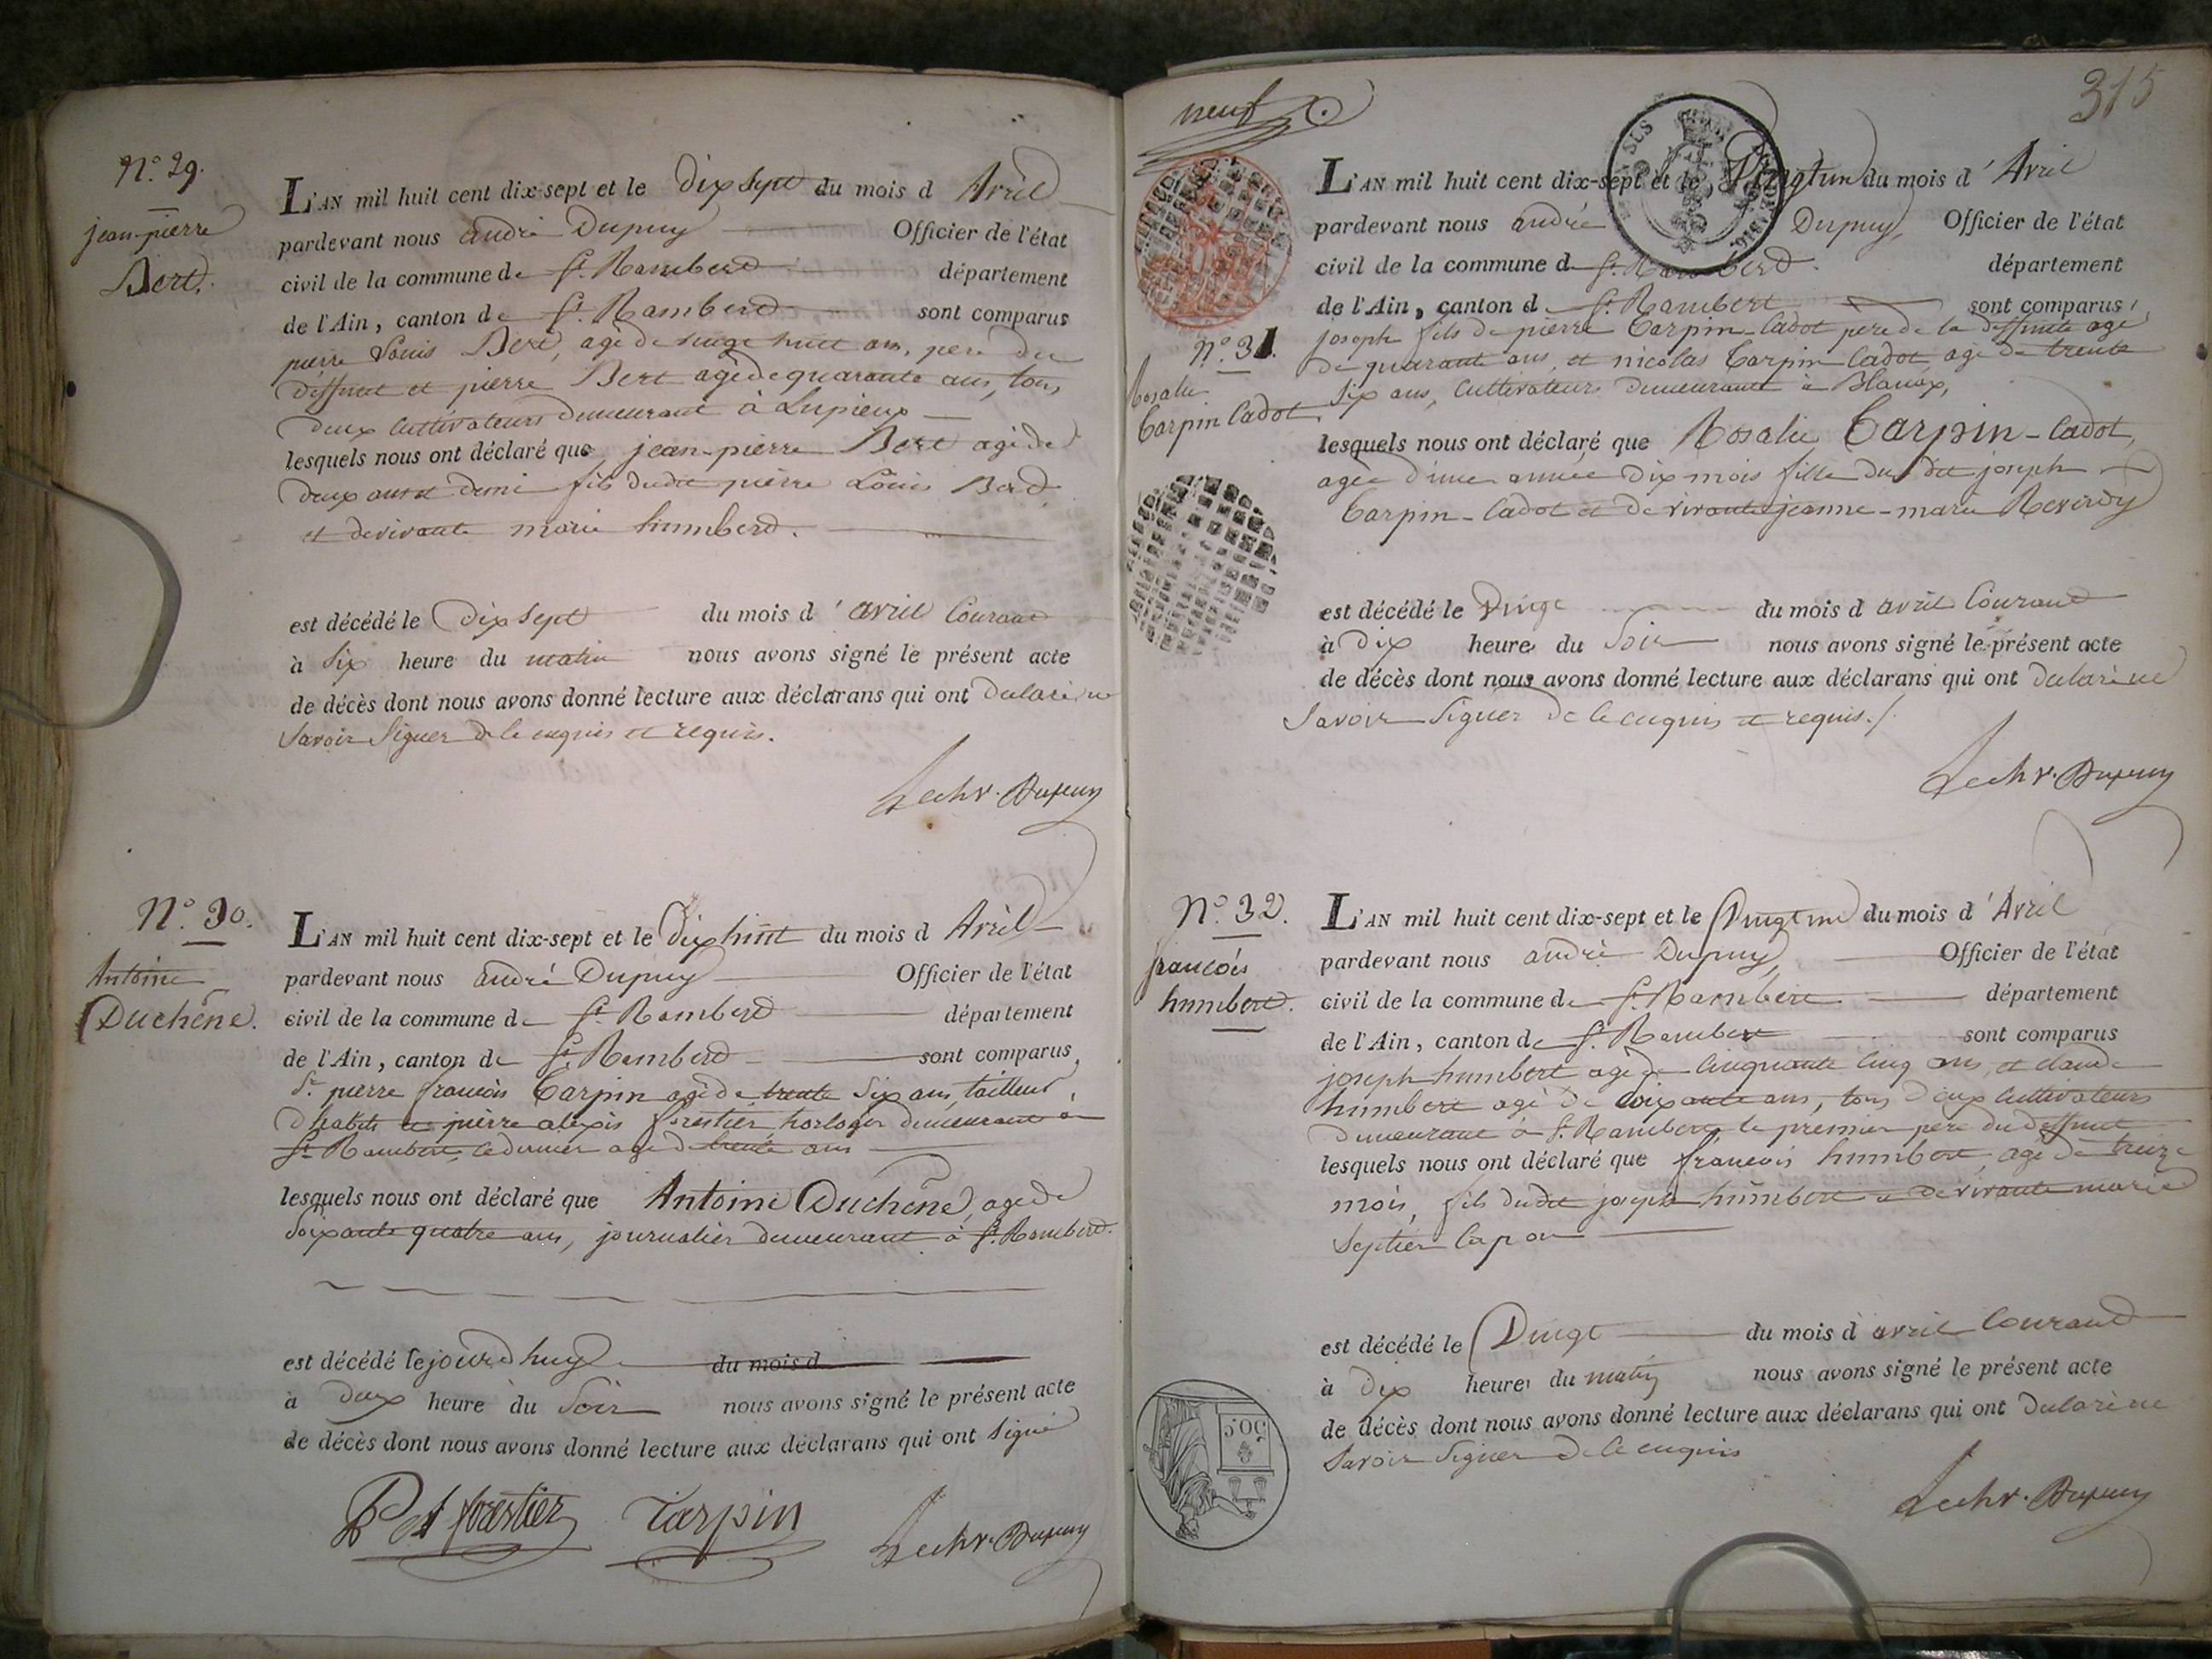 N.° 29.
jean-pierre
Bert.
L'AN mil huit cent dix-sept et le dix sept du mois d Avril
pardevant nous andré Dupuy Officier de l'état
civil de la commune de St. Rambert département
de l'Ain, canton de St. Rambert sont comparus
pierre Louis Bert, agé de vingt huit ans, pere du
deffunt et pierre Bert agé de quarante ans, tous
deux cultivateurs demeurant à Lupieux
lesquels nous ont déclaré que jean-pierre Bert agé de
deux ans et demi fils dudit pierre Louis Bert
et de vivante marie humbert.
est décédé le dix sept du mois d'avril Courant
à Six heure du matin nous avons signé le présent acte
de décès dont nous avons donné lecture aux déclarans qui ont declaré ne
Savoir Signer de ce enquis et requis.
Dupuy
N.° 30.
Antoine
Duchêne.
L'AN mil huit cent dix-sept et le dix huit du mois d Avril
pardevant nous andré Dupuy Officier de l'état
civil de la commune de St. Rambert département
de l'Ain, canton de St. Rambert sont comparus,
Sr. pierre francois Tarpin agé de trente Six ans, tailleur
d'habits et pierre alexis forestier horloger demeurant à
St. Rambert, le dernier agé de trente ans
lesquels nous ont déclaré que Antoine Duchêne, agé de
Soixante quatre ans, journalier demeurant à St. Rambert.
est décédé le jourd'huy du mois d
à deux heure du Soir nous avons signé le présent acte
de décès dont nous avons donné lecture aux déclarans qui ont signé
forestier Tarpin Dupuy
neuf
315
N.° 31.
Rosalie
Tarpin Cadot
L'AN mil huit cent dix-sept et le Vingt un du mois d'Avril
pardevant nous andré Dupuy, Officier de l'état
civil de la commune de St. Rambert département
de l'Ain, canton de St. Rambert sont comparus,
joseph fils de pierre Tarpin-Cadot pere de la deffunte agé
de quarante ans, et nicolas Tarpin Cadot, agé de trente
Six ans, Cultivateurs demeurant à Blanaz,
lesquels nous ont déclaré que Rosalie Tarpin-Cadot,
agée d'une année dix mois fille du dit joseph
Tarpin-Cadot et de vivante jeanne-marie Reverdy
est décédé le Vingt du mois d avril Courant
à Dix heure du Soir nous avons signé le présent acte
de décès dont nous avons donné lecture aux déclarans qui ont declaré ne
Savoir Signer de ce enquis et requis./.
Dupuy
N.° 32.
francois
humbert.
L'AN mil huit cent dix-sept et le Vingt un du mois d'Avril
pardevant nous andré Dupuy, Officier de l'état
civil de la commune de St. Rambert département
de l'Ain, canton de St. Rambert sont comparus
joseph humbert agé de Cinquante Cinq ans, et claude
humbert agé de Soixante ans, tous deux Cultivateurs
demeurant à St. Rambert, le premier pere du deffunt
lesquels nous ont déclaré que francois humbert, agé de treize
mois, fils dudit joseph humbert et de vivante marie
Septier Capon
est décédé le Vingt du mois d avril Courant
à Dix heure du matin nous avons signé le présent acte
de décès dont nous avons donné lecture aux déclarans qui ont declaré ne
Savoir Signer de ce enquis
50 C
Dupuy